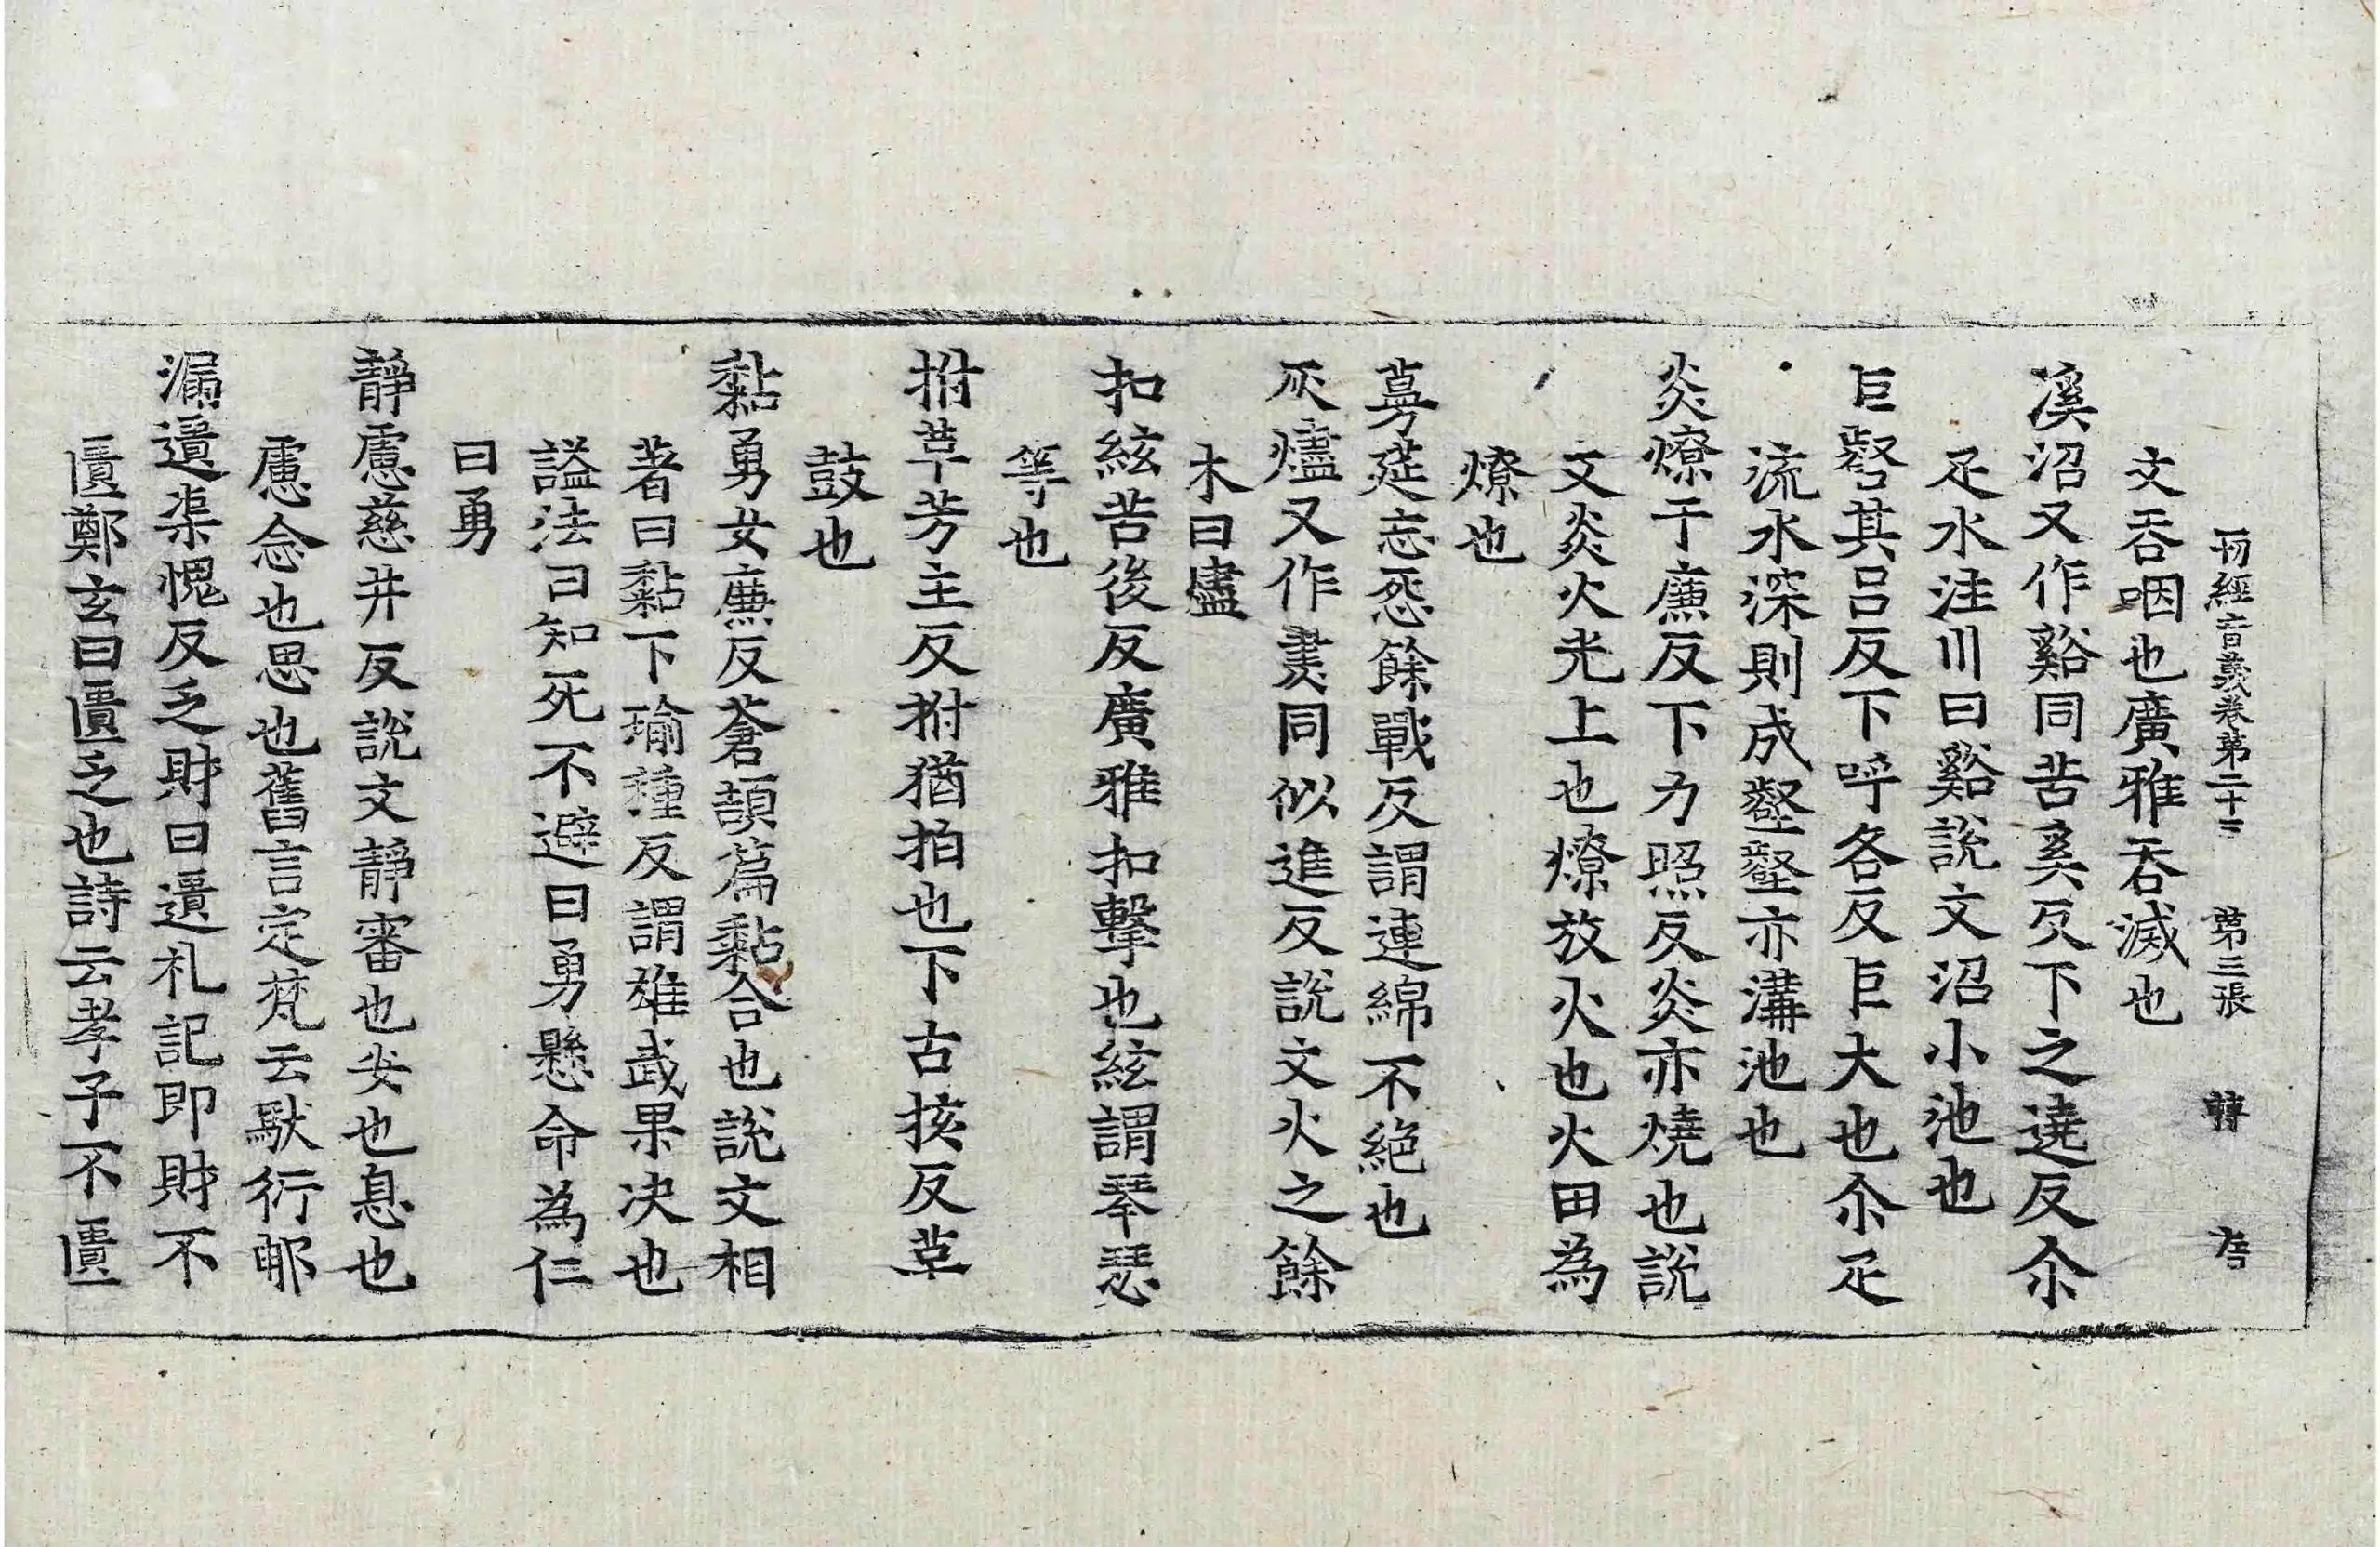 刊經音義卷第二十三　第三張　𫝊　存
文吞咽也廣雅吞滅也
溪沼又作谿同苦奚反下之遶反尒
疋水洼川曰谿說文沼小池也
巨壑其呂反下呼各反巨大也尒疋
流水深則成壑壑亦溝池也
炎燎于廉反下力照反炎亦燒也說
文炎火光上也燎放火也火田為
燎也
蔓莚忘怨餘戰反謂連綿不絶也
灰燼又作㶳同似進反說文火之餘
木曰燼
扣絃苦後反廣雅扣擊也絃謂琴瑟
等也
拊革芳主反拊猶拍也下古核反革
鼓也
黏勇女廉反蒼頡篇黏合也說文相
著曰黏下瑜種反謂雄武果决也
謚法曰知死不避曰勇懸命為仁
曰勇
靜慮慈井反說文靜審也安也息也
慮念也思也舊言定梵云馱衍郍
漏遺渠愧反乏財曰遺札記即財不
匱鄭玄曰匱乏也詩云孝子不匱